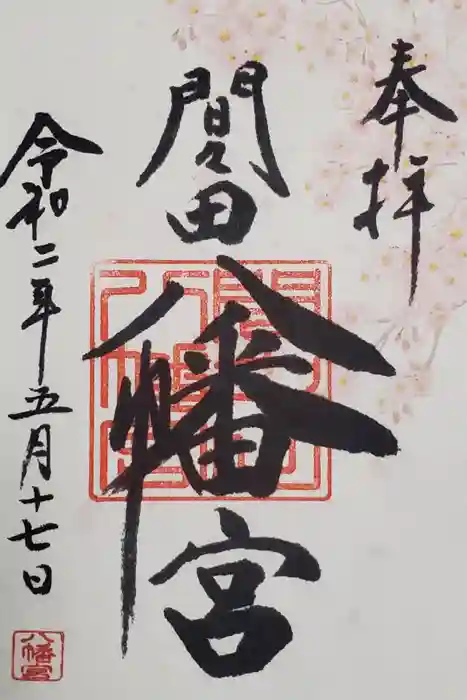 奉拝
間々田
八幡宮
令和二年五月十七日
八幡宮